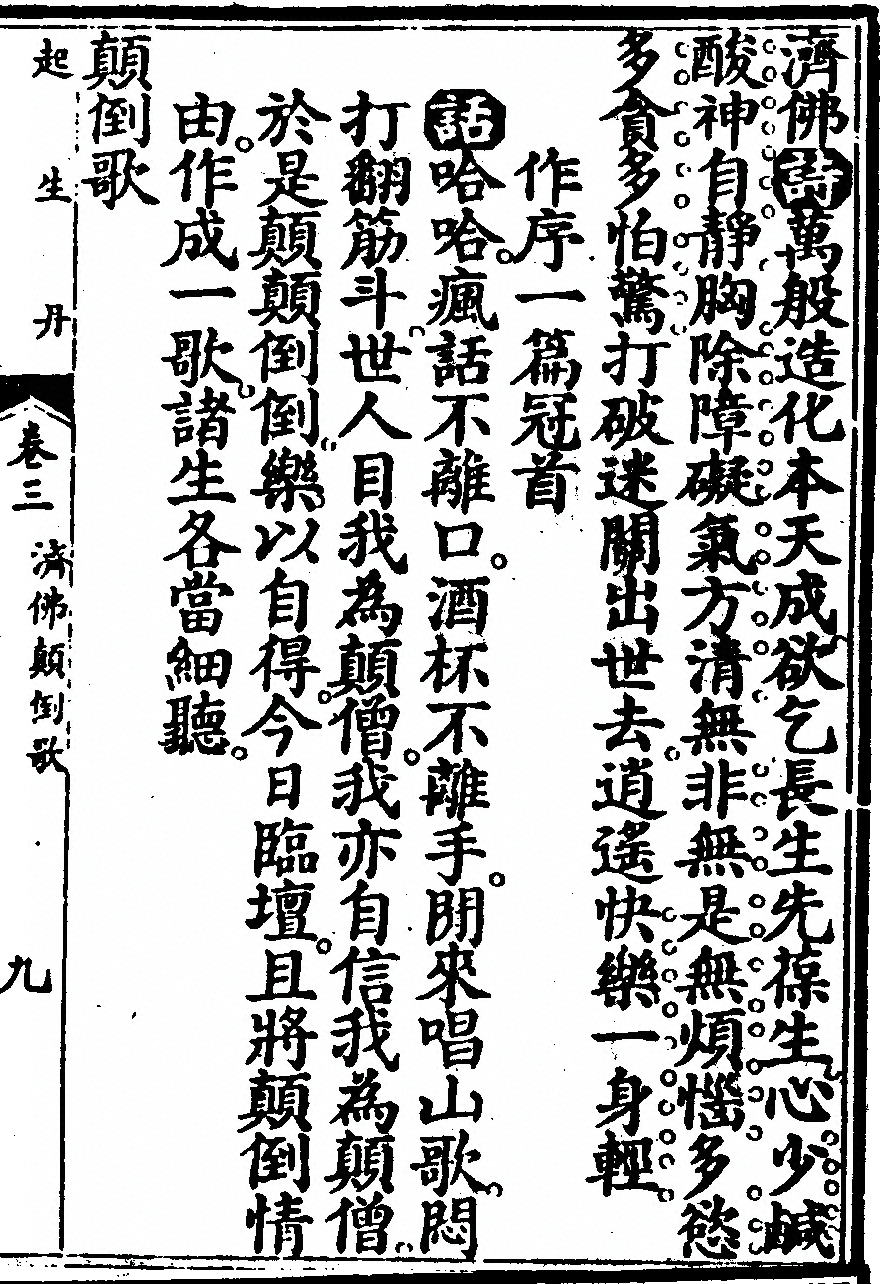 濟佛詩萬般造化本天成欲乞長生先葆生心少鹹
酸神自靜胸除障礙氣方清無非無是無煩惱多慾
多貪多怕驚打破迷關出世去逍遙快樂一身輕
作序一篇冠首
話哈哈。瘋話不離口。酒杯不離手。閒來唱山歌。悶
打翻筋斗。世人目我為顛僧。我亦自信我為顛僧。
於是顛顛倒倒。樂以自得。今日臨壇。且將顛倒情
由。作成一歌。諸生各當細聽。
顛倒歌
起生丹
卷三
濟佛顛倒歌
九